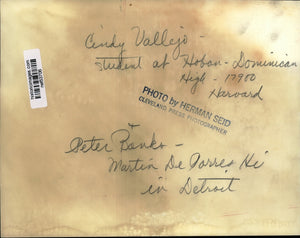 Cindy Vallejo -
student at Hoban - Dominican
High - 17900
Harvard
PHOTO by HERMAN SEID
CLEVELAND PRESS PHOTOGRAPHER
Peter Banko -
Martin De Porres Hi
in Detroit